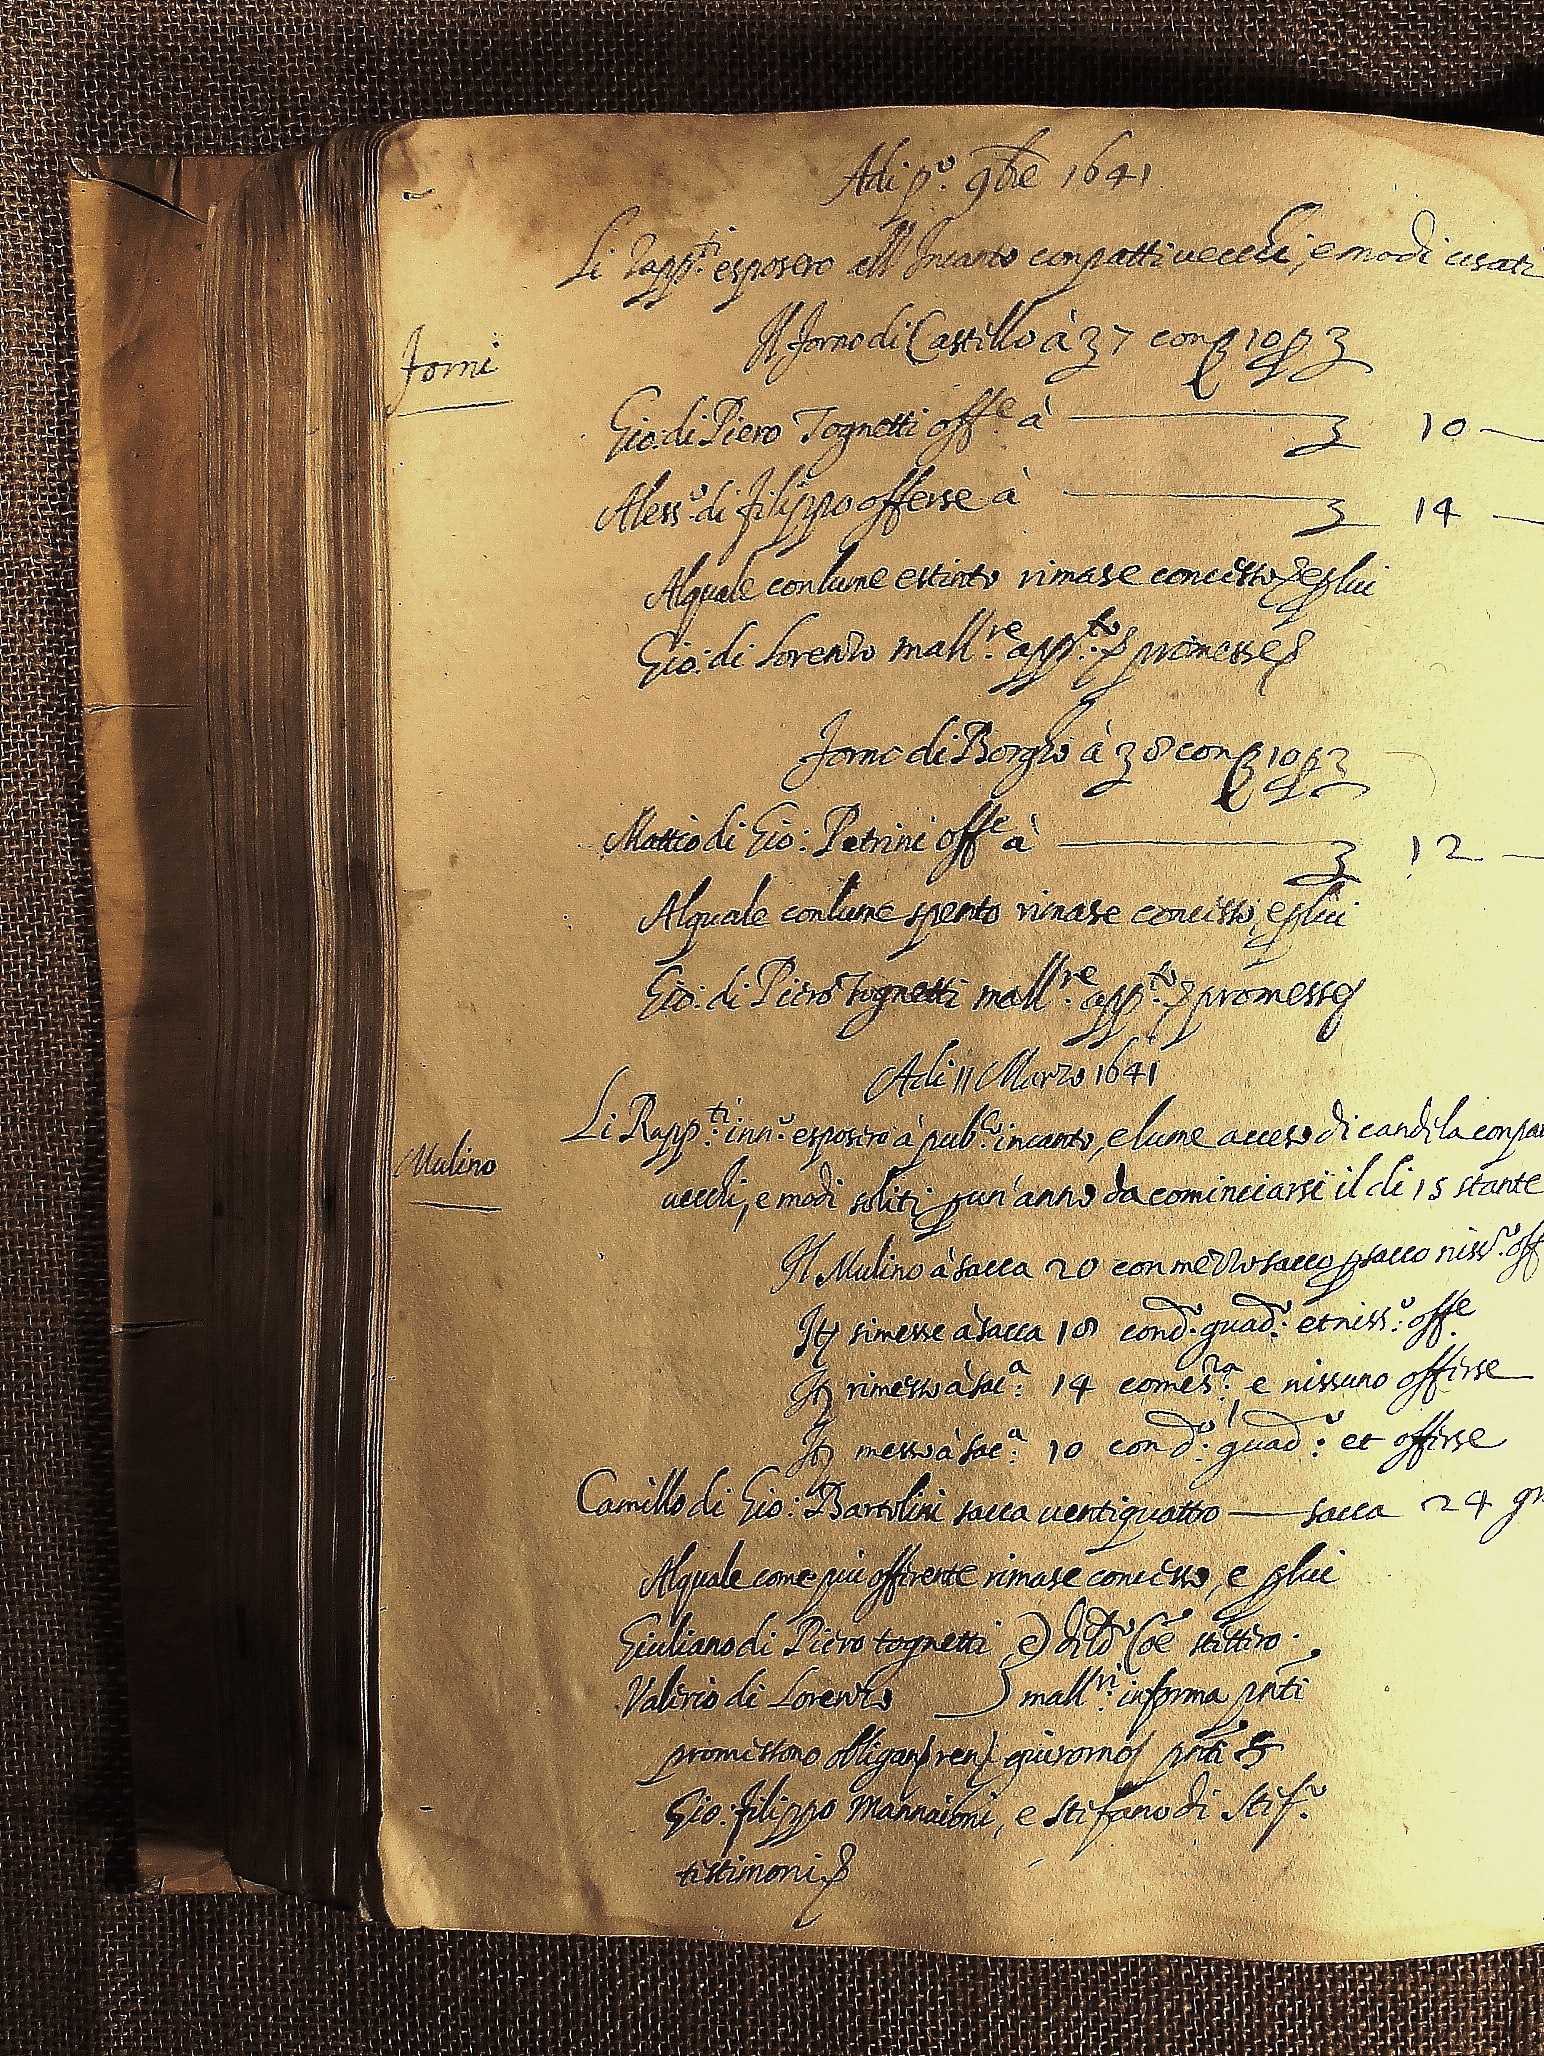 Adi p.º 9bre 1641
Li Rapp.ti esposero all'Incanto con patti vecchi, e modi usati
Forni
Il Forno di Castello à 37 con 10 p
Gio: di Piero Tognetti off.e à 10
Aless.º di Filippo offerse à 14
Al quale con lume estinto rimase concesso, e p lui
Gio: di Lorenzo mall.re app.to promesse
Forno di Borgho à 38 con 10 p
Mattio di Gio: Petrini off.e à 12
Al quale con lume spento rimase concesso, e p lui
Gio: di Piero Tognetti mall.re app.to promesse
Adi 11 Marzo 1641
Li Rapp.ti inn.º esposero à pub.co incanto, e lume acceso di candela con
Mulino
vecchi, e modi soliti p un'anno da cominciarsi il di 15 stante
Il Mulino à sacca 20 con mezzo sacco p sacco niss.º off
It rimesse à sacca 18 con d.º guad.º et niss.º off.e
It rimesso à sac.a 14 come s.ra e nissuno offerse
It messo à sac.a 10 con d.º guad.º et offerse
Camillo di Gio: Bartolini sacca ventiquattro sacca 24
Al quale come più offerente rimase concesso, e p lui
Giuliano di Piero tognetti
Valerio di Lorenzo mall.ri in forma pnti
promettono obligan
Gio: Filippo Mannaioni, e Stefano di Stef.º
testimoni